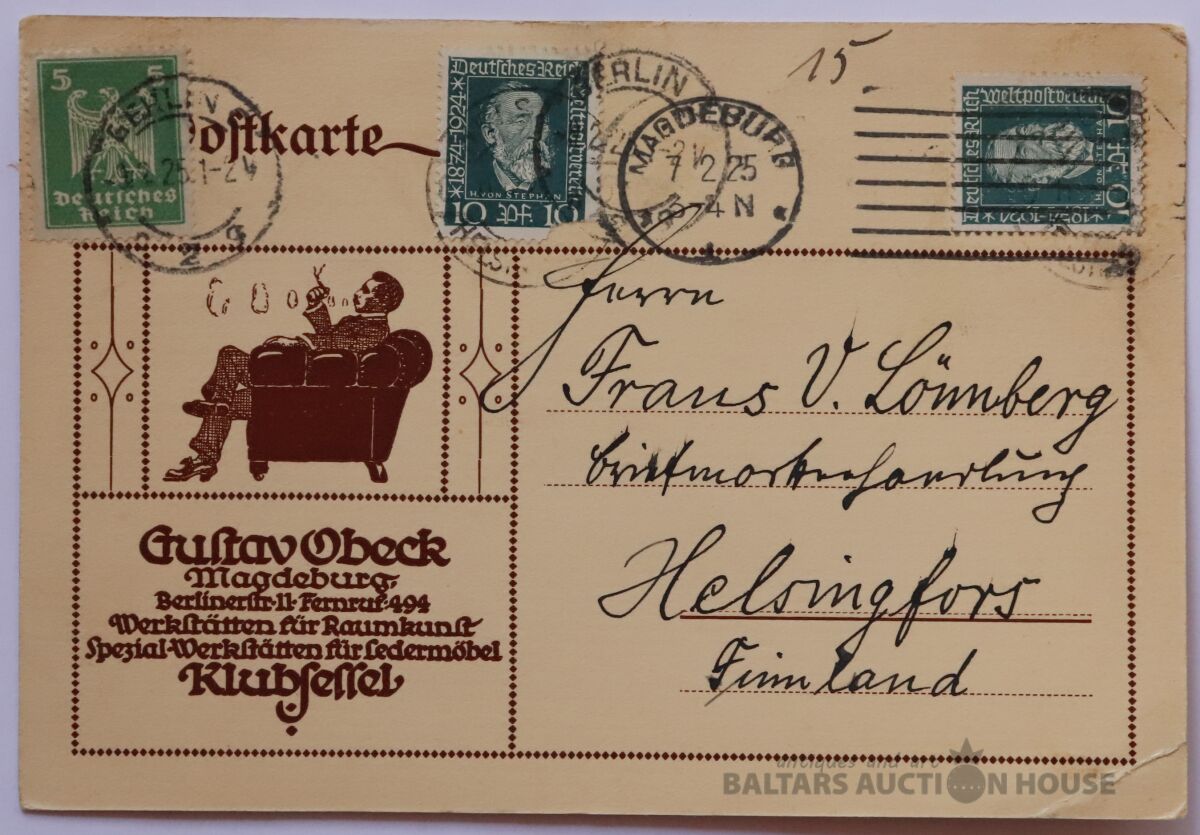 5 5
Deutsches
Reich
Postkarte
Deutsches Reich
Weltpostverein
*1874-1924*
H.VON STEPHAN
10 Pf 10
BERLIN
MAGDEBURG
7 2.25
3-4 N
15
Deutsches Reich
Weltpostverein
*1874-1924*
10 Pf 10
Herrn
Frans V. Lönnberg
Briefmarkenhandlung
Helsingfors
Finnland
Gustav Obeck
Magdeburg,
Berlinerstr·11· Fernruf·494
Werkstätten für Raumkunst
Spezial-Werkstätten für Ledermöbel
Klubsessel
antiques and art
BALTARS AUCTION HOUSE